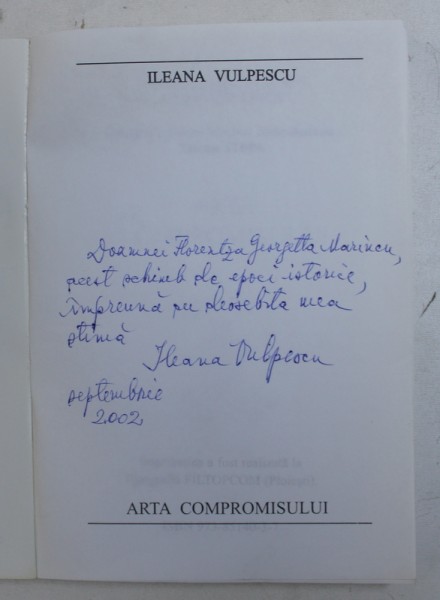 ILEANA VULPESCU
Doamnei Florentza Georgetta Marincu,
acest schimb de epoci istorice,
împreună cu deosebita mea
stimă
Ileana Vulpescu
septembrie
2002
ARTA COMPROMISULUI